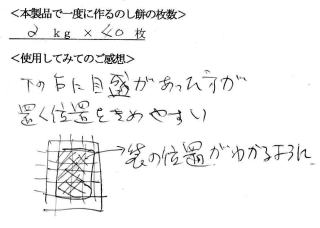 ＜本製品で一度に作るのし餅の枚数＞
2 kg × 40 枚
＜使用してみてのご感想＞
下の台に目盛があった方が
置く位置をきめやすい
袋の位置がわかるように